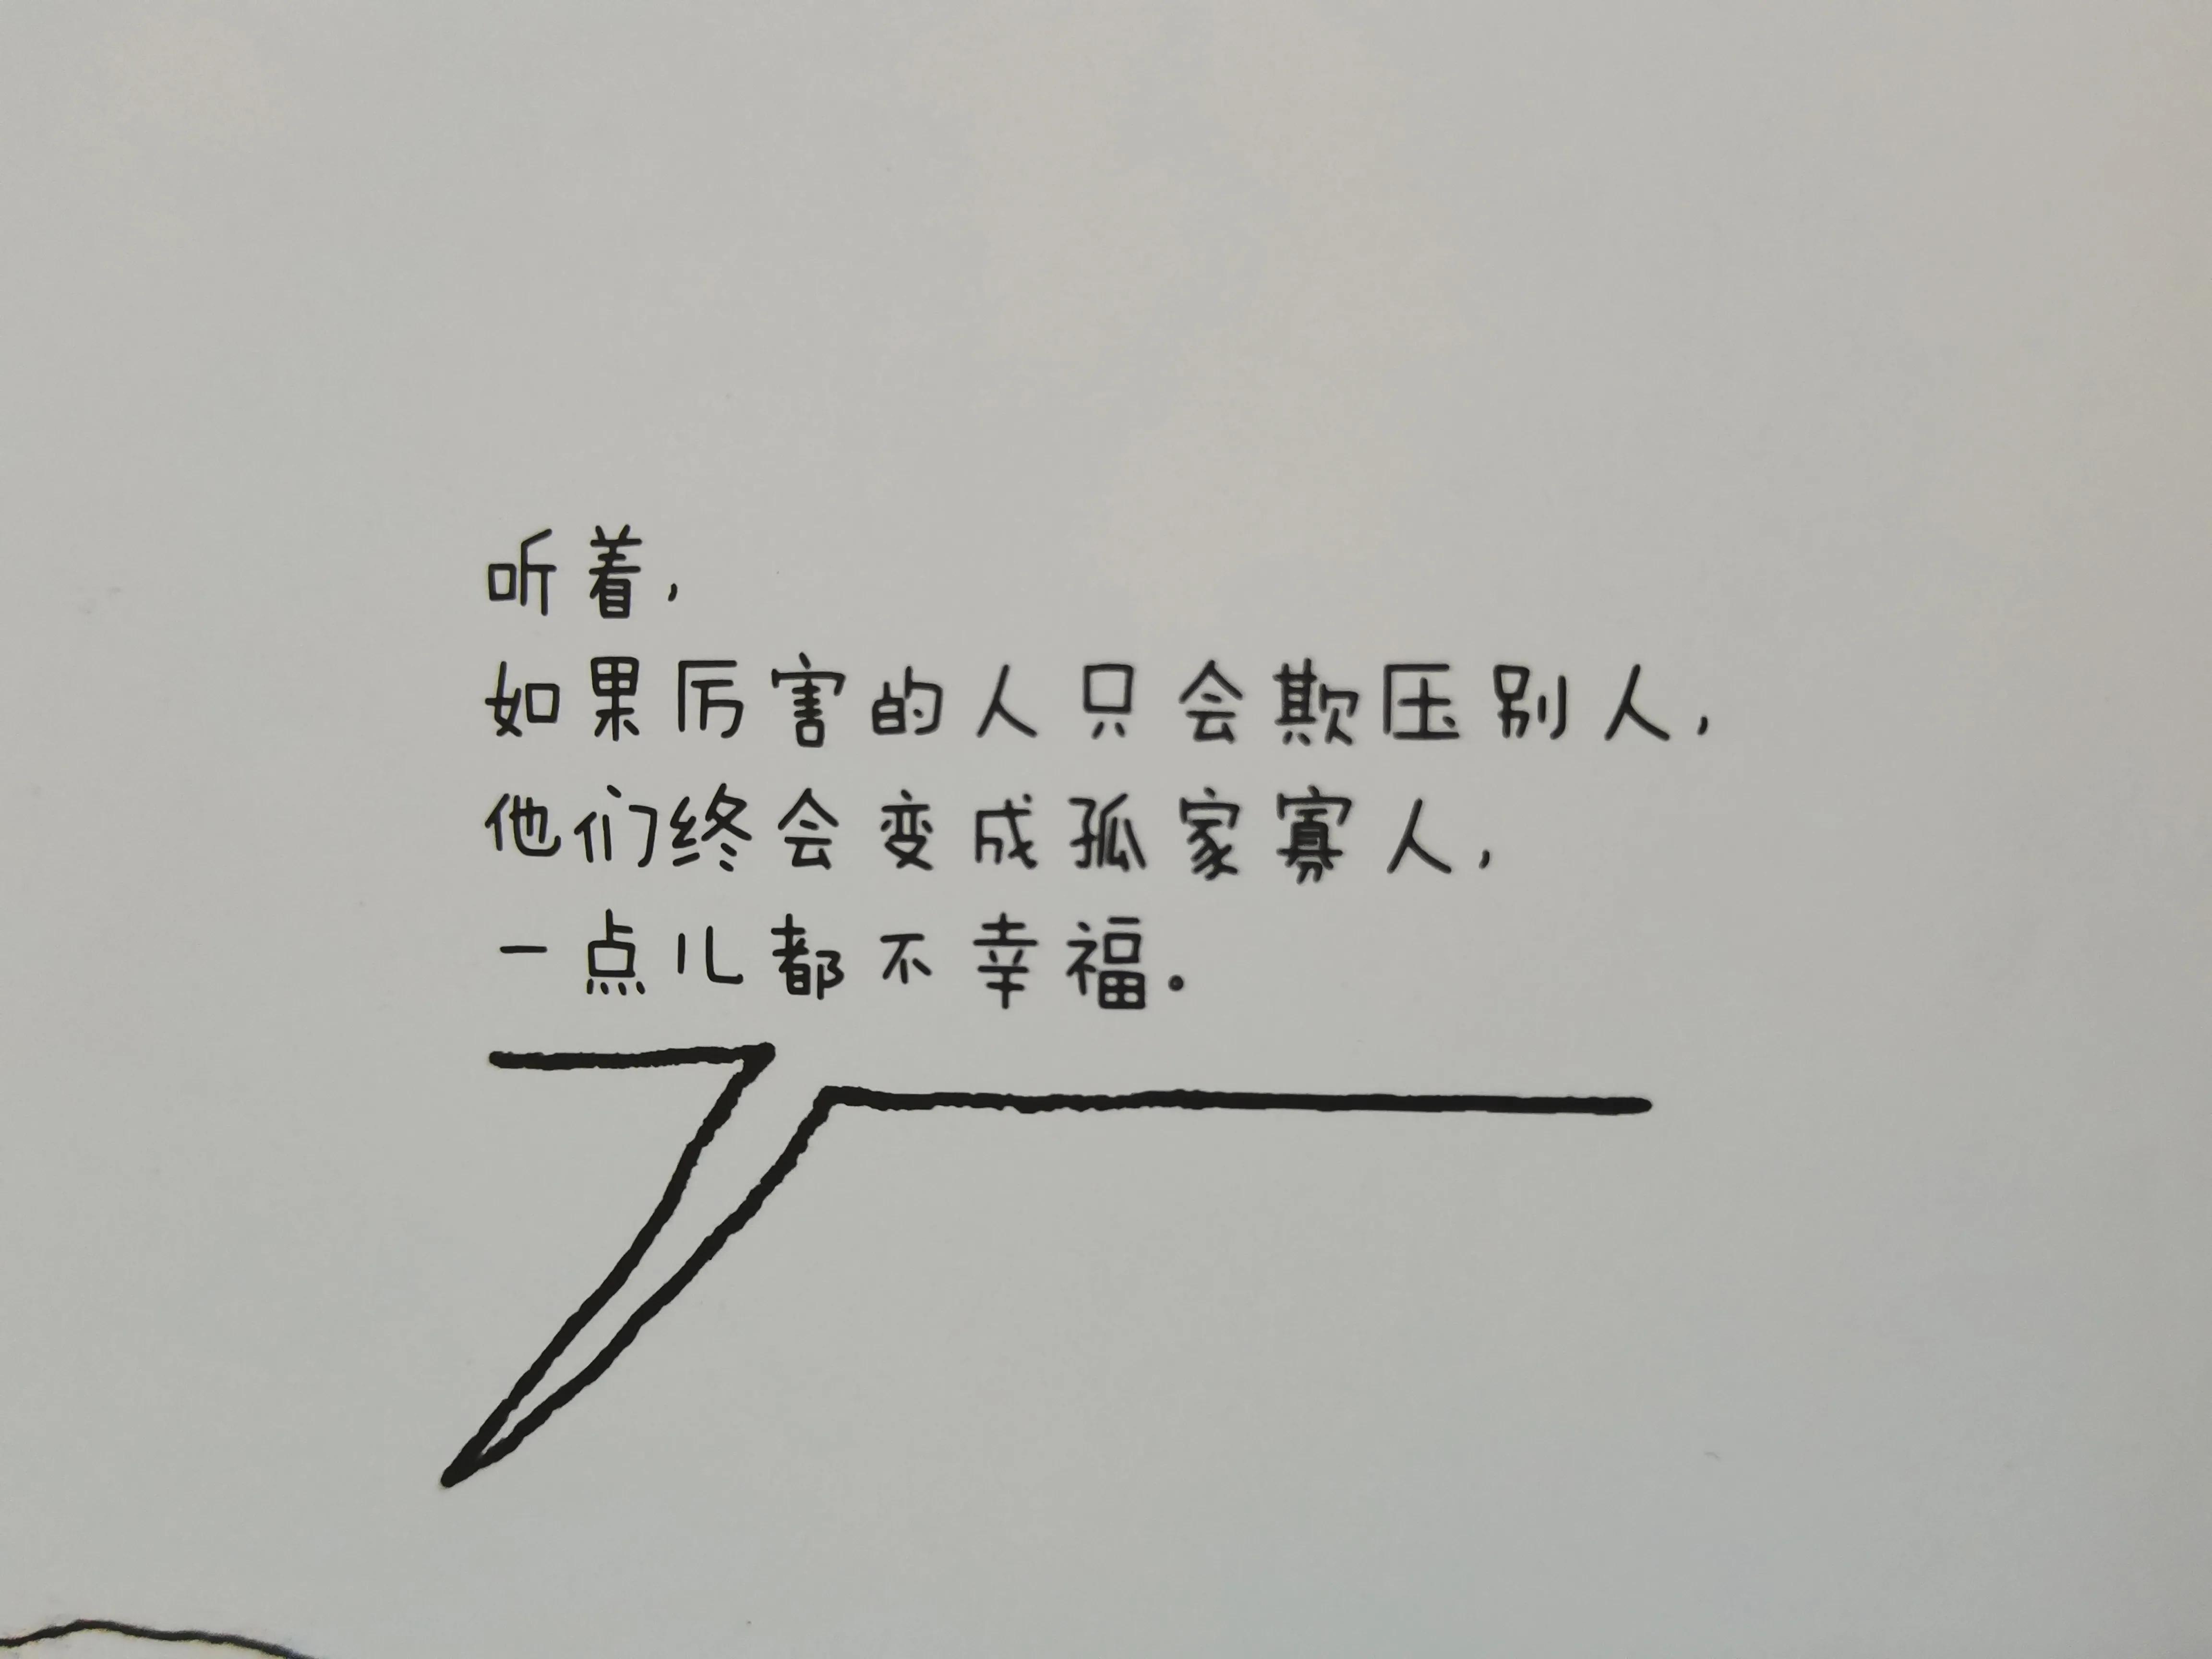 听着，
如果厉害的人只会欺压别人，
他们终会变成孤家寡人，
一点儿都不幸福。